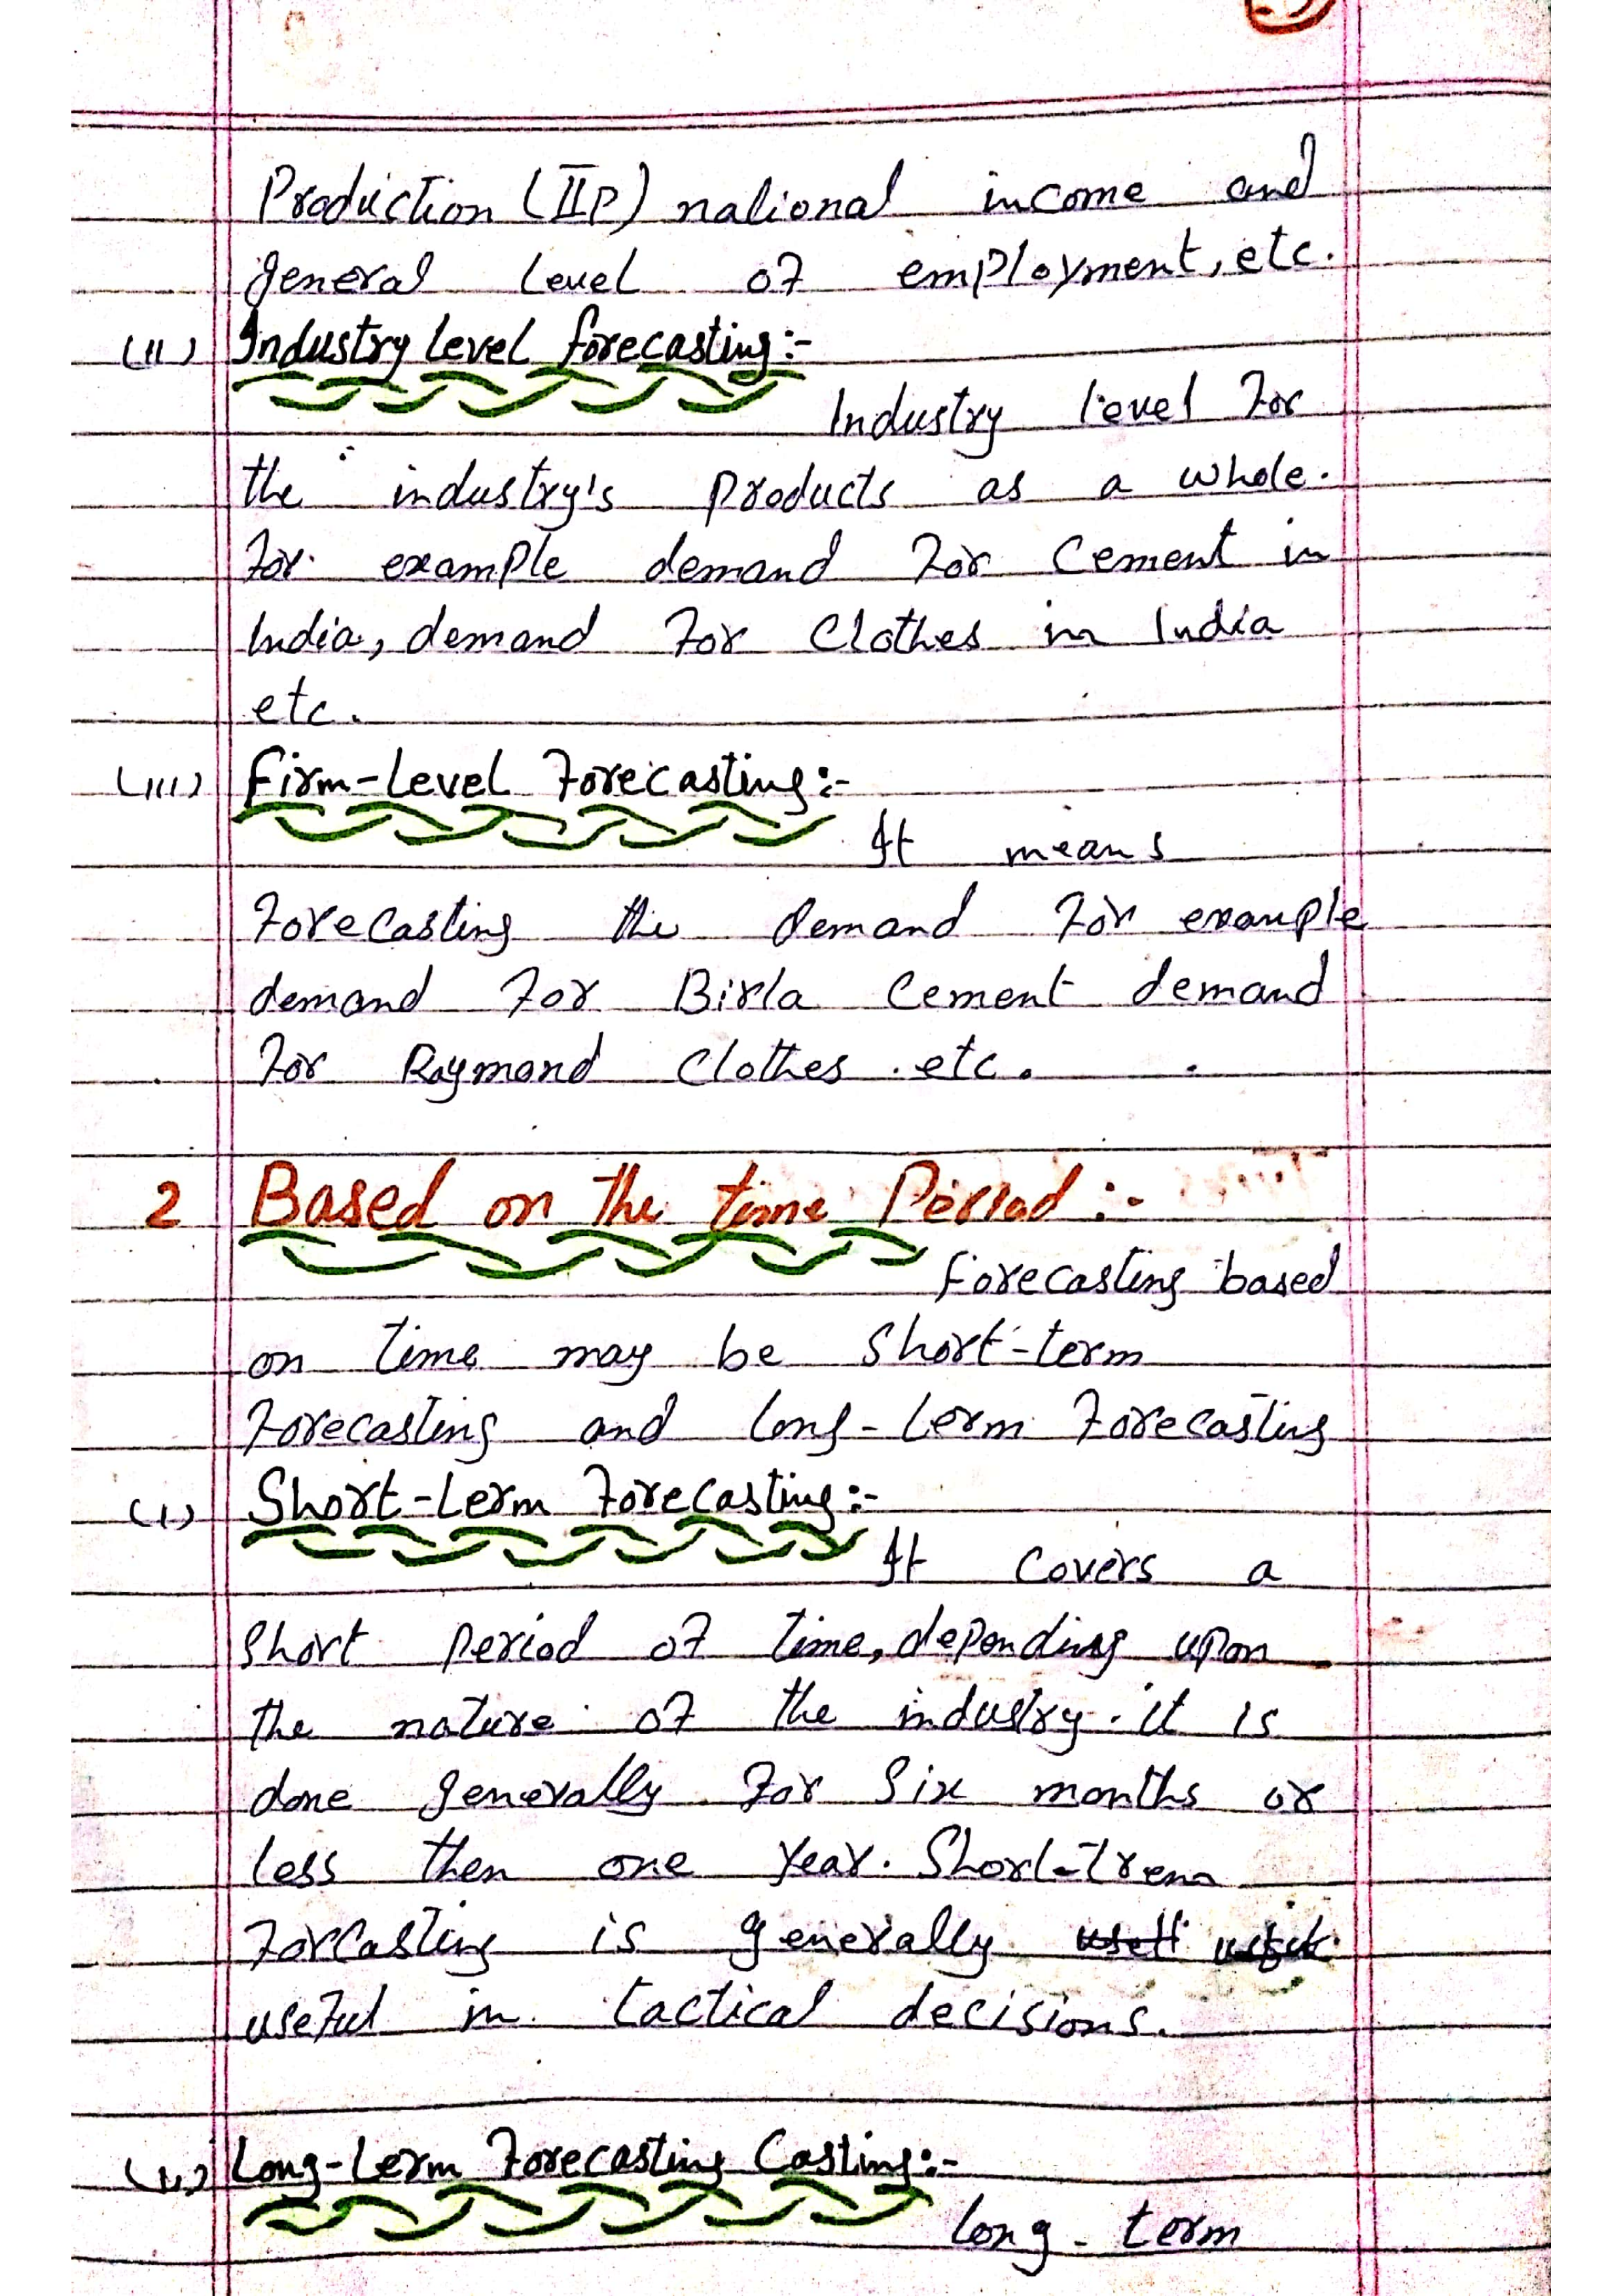 Production (IIP) national income and
general level of employment, etc.
(II) Industry level forecasting:-
Industry level for
the industry's products as a whole.
for example demand for Cement in
India, demand for Clothes in India
etc.
(III) Firm-Level Forecasting:-
It means
Forecasting the demand for example
demand for Birla Cement demand
for Raymond Clothes etc.
2 Based on the time Period :-
Forecasting based
on time may be Short-term
Forecasting and long-term Forecasting
(I) Short-term Forecasting:-
It Covers a
Short Period of time, depending upon
the nature of the industry. it is
done generally for Six months or
less then one year. Short-trem
Forcasting is generally
useful in tactical decisions.
(II) Long-term Forecasting Casting:-
long-term